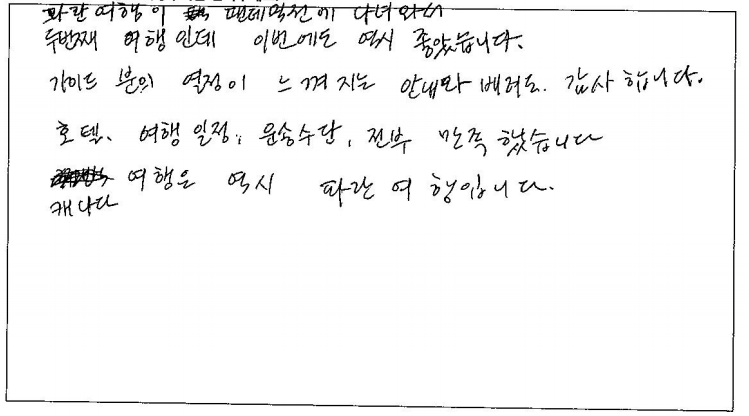 파란여행이 팬데믹전에 다녀와서
두번째 여행인데 이번에도 역시 좋았습니다.
가이드 분의 열정이 느껴지는 안내와 배려도. 감사합니다.
호텔, 여행일정, 운송수단, 전부 만족했습니다
캐나다 여행은 역시 파란여행입니다.